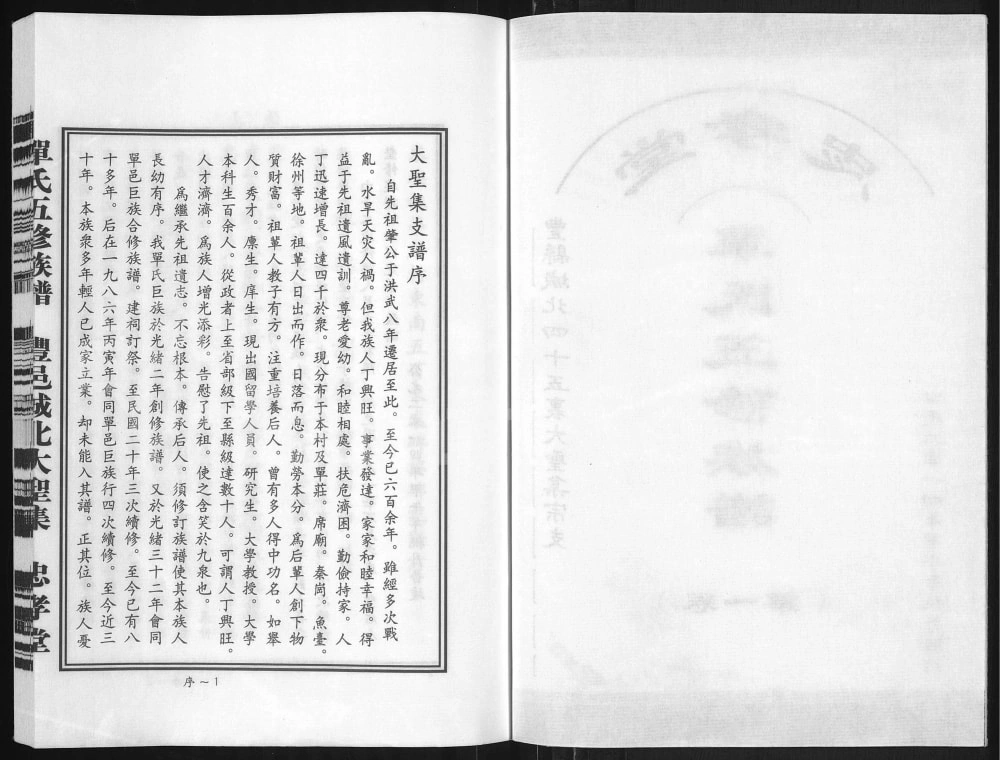 大聖集支譜序
自先祖肇公于洪武八年遷居至此。至今已六百余年。雖經多次戰
亂。水旱天灾人禍。但我族人丁興旺。事業發達。家家和睦幸福。得
益于先祖遺風遺訓。尊老愛幼。和睦相處。扶危濟困。勤儉持家。人
丁迅速增長。達四千於衆。現分布于本村及單莊。席廟。秦崗。魚臺。
徐州等地。祖輩人日出而作。日落而息。勤勞本分。爲后輩人創下物
質財富。祖輩人教子有方。注重培養后人。曾有多人得中功名。如舉
人。秀才。廪生。庠生。現出國留學人員。研究生。大學教授。大學
本科生百余人。從政者上至省部級下至縣級達數十人。可謂人丁興旺。
人才濟濟。爲族人增光添彩。告慰了先祖。使之含笑於九泉也。
爲繼承先祖遺志。不忘根本。傳承后人。須修訂族譜使其本族人
長幼有序。我單氏巨族於光緒二年創修族譜。又於光緒三十二年會同
單邑巨族合修族譜。建祠訂祭。至民國二十年三次續修。至今已有八
十多年。后在一九八六年丙寅年會同單邑巨族行四次續修。至今近三
十年。本族衆多年輕人已成家立業。却未能入其譜。正其位。族人憂
序~1
單氏五修族譜 豐邑城北大聖集 忠孝堂
豐縣城北四十五裏大聖集宗支